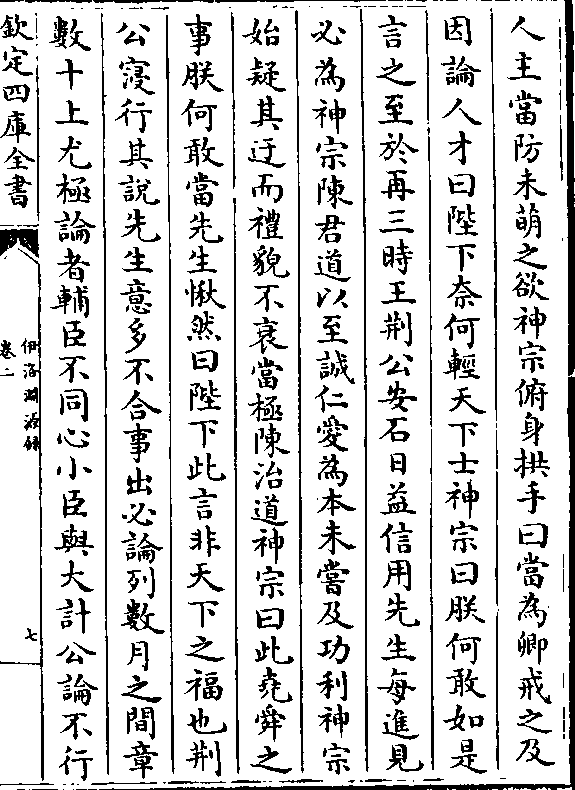 人主當防未萌之欲神宗俯身拱手曰當為卿戒之及
因論人才曰陛下奈何輕天下士神宗曰朕何敢如是
言之至於再三時王荆公安石日益信用先生每進見
必為神宗陳君道以至誠仁愛為本未嘗及功利神宗
始疑其迂而禮貌不衰當極陳治道神宗曰此堯舜之
事朕何敢當先生愀然曰陛下此言非天下之福也荆
公寖行其說先生意多不合事出必論列數月之間章
數十上尤極論者輔臣不同心小臣與大計公論不行
欽定四庫全書
伊洛淵源錄
卷二
七